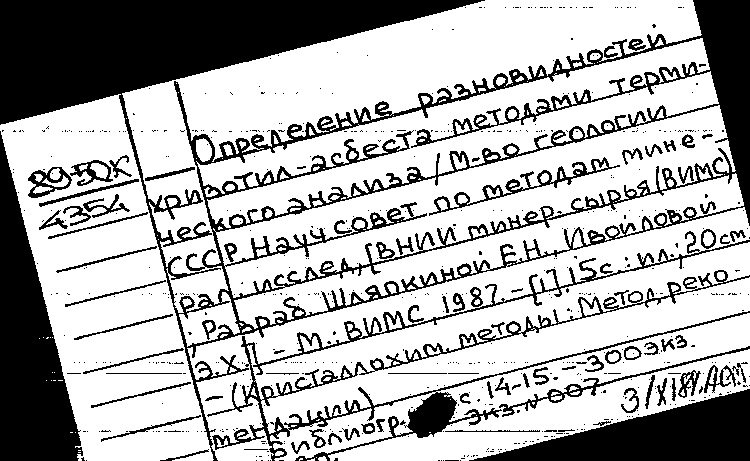 Определение разновидностей
89-50к
хризотил-асбеста методами терми-
4354
ческого анализа / М-во геологии
СССР. Науч совет по методам мине-
рал. исслед, [ВНИИ минер. сырья (ВИМС)
; Разраб. Шляпкиной Е.Н., Ивойловой
Э.Х.] - М.: ВИМС, 1987. - [1], 15с. : ил.; 20 см
- (Кристаллохим. методы : Метод, реко-
мендации)
Библиогр. с. 14-15. -- 300экз.
экз. N 007.